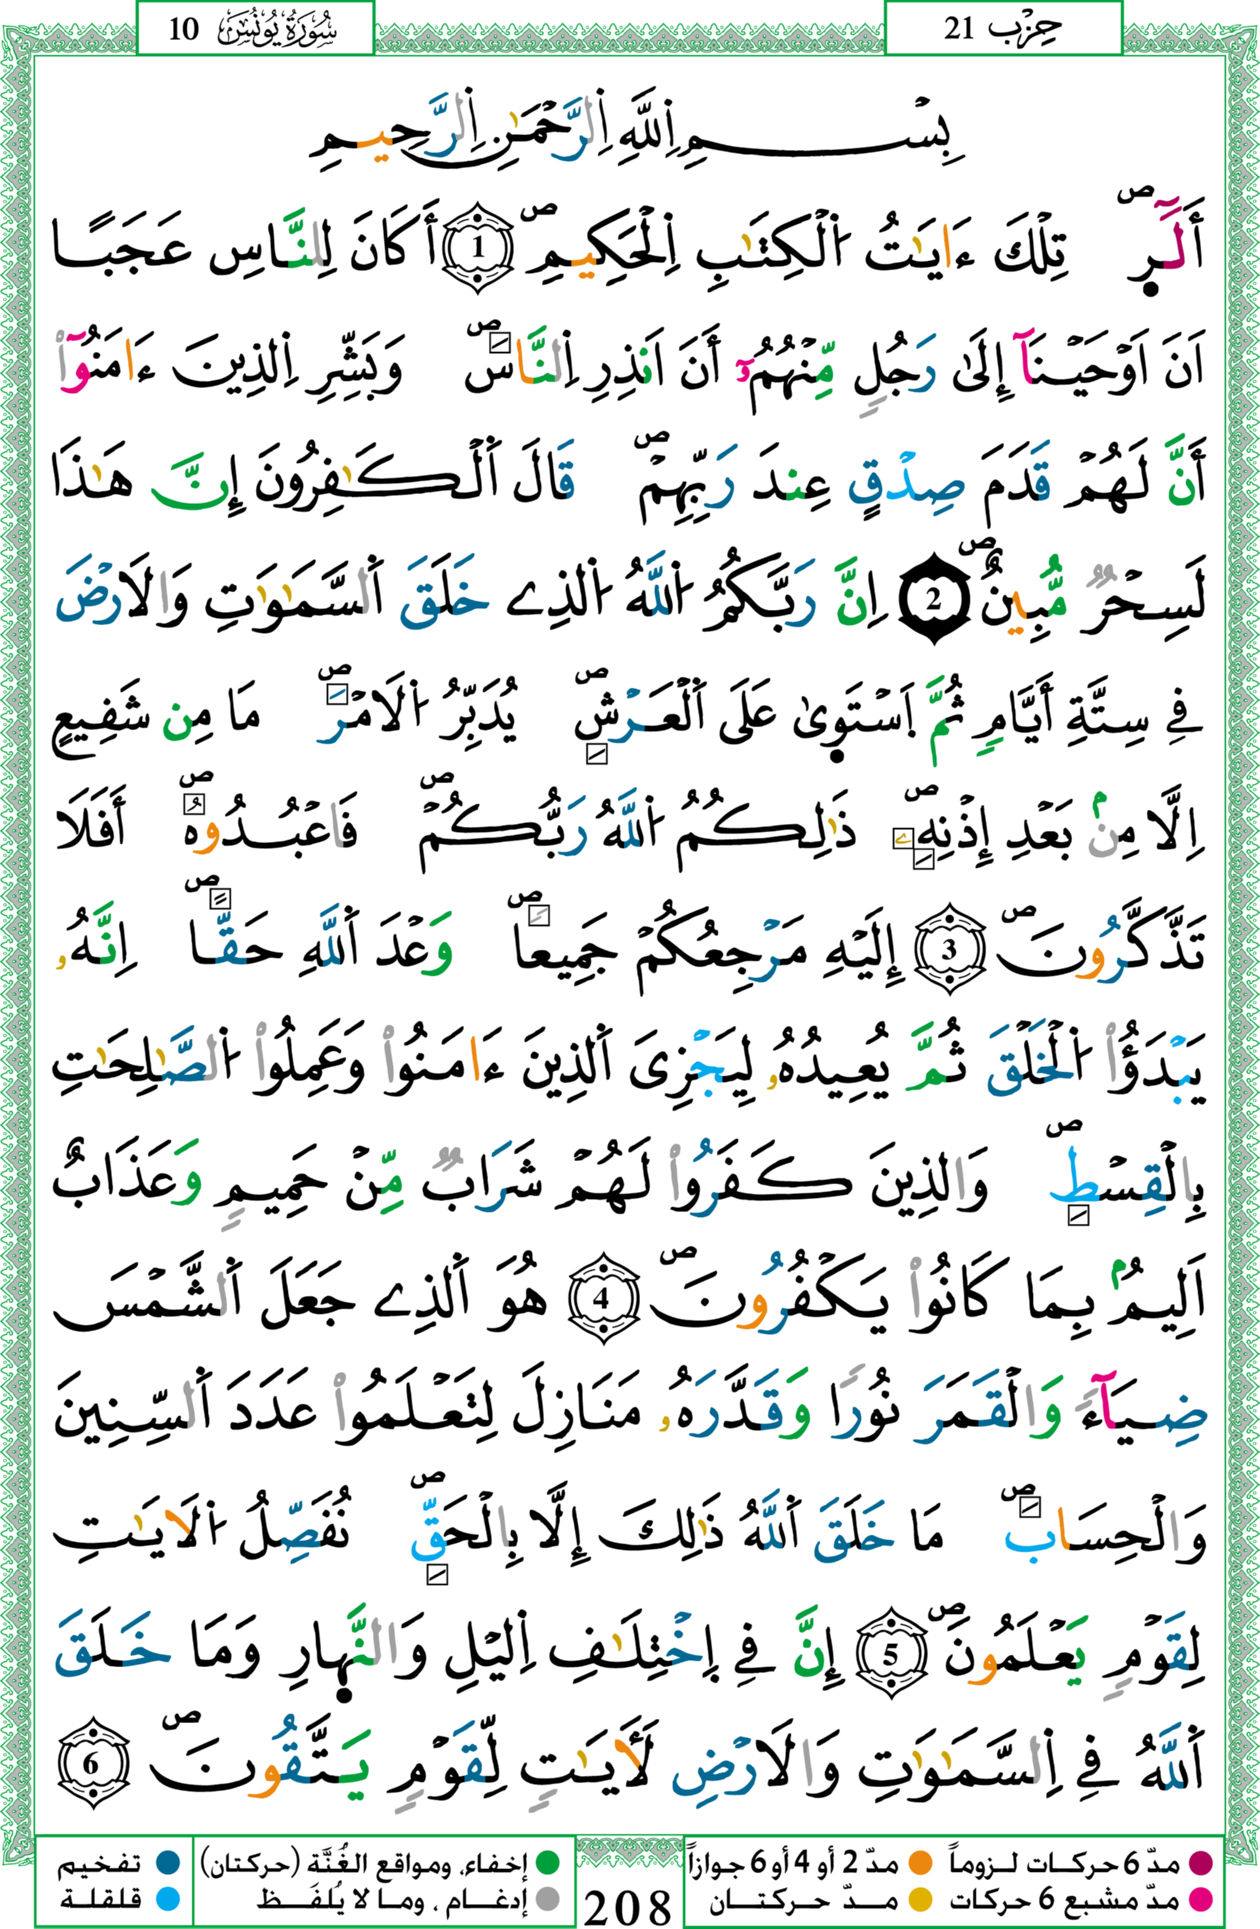 سُورَةُ يُونُسَ 10
حِزْب 21
بِسْمِ اِللَّهِ اِلرَّحْمَٰنِ اِلرَّحِيمِ
أَلَٓرۖ تِلْكَ ءَايَٰتُ اُ۬لْكِتَٰبِ اِ۬لْحَكِيمِۖ 1 أَكَانَ لِلنَّاسِ عَجَبًا
اَنَ اَوْحَيْنَآ إِلَىٰ رَجُلٖ مِّنْهُمُۥٓ أَنَ اَنذِرِ اِ۬لنَّاسَۖ وَبَشِّرِ اِ۬لذِينَ ءَامَنُوٓاْ
أَنَّ لَهُمْ قَدَمَ صِدْقٍ عِندَ رَبِّهِمْۖ قَالَ اَ۬لْكَٰفِرُونَ إِنَّ هَٰذَا
لَسِحْرٞ مُّبِينٌۖ 2 اِنَّ رَبَّكُمُ اُ۬للَّهُ اُ۬لذِے خَلَقَ اَ۬لسَّمَٰوَٰتِ وَالَارْضَ
فِے سِتَّةِ أَيَّامٖ ثُمَّ اَ۪سْتَوِىٰ عَلَى اَ۬لْعَرْشِۖ يُدَبِّرُ اُ۬لَامْرَۖ مَا مِن شَفِيعٍ
اِلَّا مِنۢ بَعْدِ إِذْنِهِۦۖ ذَٰلِكُمُ اُ۬للَّهُ رَبُّكُمْۖ فَاعْبُدُوهُۖ أَفَلَا
تَذَّكَّرُونَۖ 3 إِلَيْهِ مَرْجِعُكُمْ جَمِيعاٗۖ وَعْدَ اَ۬للَّهِ حَقّاًۖ اِنَّهُۥ
يَبْدَؤُاْ اُ۬لْخَلْقَ ثُمَّ يُعِيدُهُۥ لِيَجْزِىَ اَ۬لذِينَ ءَامَنُواْ وَعَمِلُواْ اُ۬لصَّٰلِحَٰتِ
بِالْقِسْطِۖ وَالذِينَ كَفَرُواْ لَهُمْ شَرَابٞ مِّنْ حَمِيمٖ وَعَذَابٌ
اَلِيمُۢ بِمَا كَانُواْ يَكْفُرُونَۖ 4 هُوَ اَ۬لذِے جَعَلَ اَ۬لشَّمْسَ
ضِيَآءٗ وَالْقَمَرَ نُوراٗ وَقَدَّرَهُۥ مَنَازِلَ لِتَعْلَمُواْ عَدَدَ اَ۬لسِّنِينَ
وَالْحِسَابَۖ مَا خَلَقَ اَ۬للَّهُ ذَٰلِكَ إِلَّا بِالْحَقِّۖ نُفَصِّلُ اُ۬لَايَٰتِ
لِقَوْمٖ يَعْلَمُونَۖ 5 إِنَّ فِے اِ۪خْتِلَٰفِ اِ۬ليْلِ وَالنَّهِارِ وَمَا خَلَقَ
اَ۬للَّهُ فِے اِ۬لسَّمَٰوَٰتِ وَالَارْضِ لَأٓيَٰتٖ لِّقَوْمٖ يَتَّقُونَۖ 6
مدّ 6 حركات لـزومـاً مدّ 2 أو 4 أو 6 جوازاً إخفاء، ومواقع الغُنَّة (حركتان) تفخيم
مدّ مشبع 6 حركات مــدّ حـركـتـان إدغــام ، ومـا لا يُلفَـظ قلقلة
208